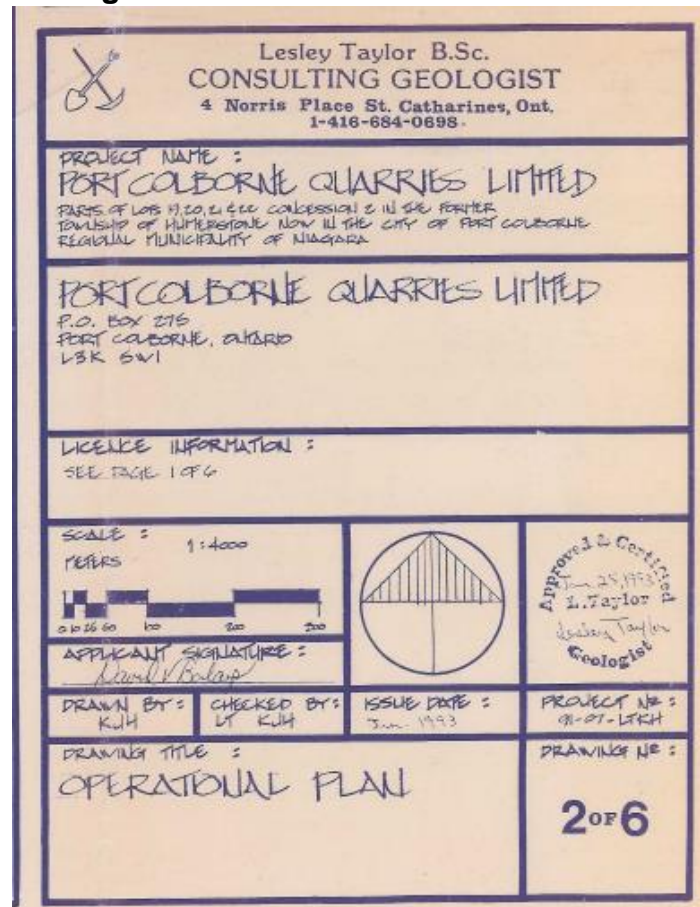 Lesley Taylor B.Sc.
CONSULTING GEOLOGIST
4 Norris Place St. Catharines, Ont.
1-416-684-0698
PROJECT NAME :
PORT COLBORNE QUARRIES LIMITED
PARTS OF LOTS 19,20,21 & 22 CONCESSION 2 IN THE FORMER
TOWNSHIP OF HUMBERSTONE NOW IN THE CITY OF PORT COLBORNE
REGIONAL MUNICIPALITY OF NIAGARA
PORT COLBORNE QUARRIES LIMITED
P.O. BOX 275
PORT COLBORNE, ONTARIO
L3K 5W1
LICENCE INFORMATION :
SEE PAGE 1 OF 6
SCALE : 1:4000
METERS
0 10 25 50 100 200 300
Approved & Certified
Jan 25, 1993
L. Taylor
Lesley Taylor
Geologist
APPLICANT SIGNATURE :
David V
DRAWN BY :
KJH
CHECKED BY :
LT KJH
ISSUE DATE :
Jan. 1993
PROJECT Nº :
91-07-LTKH
DRAWING TITLE :
OPERATIONAL PLAN
DRAWING Nº :
2 OF 6